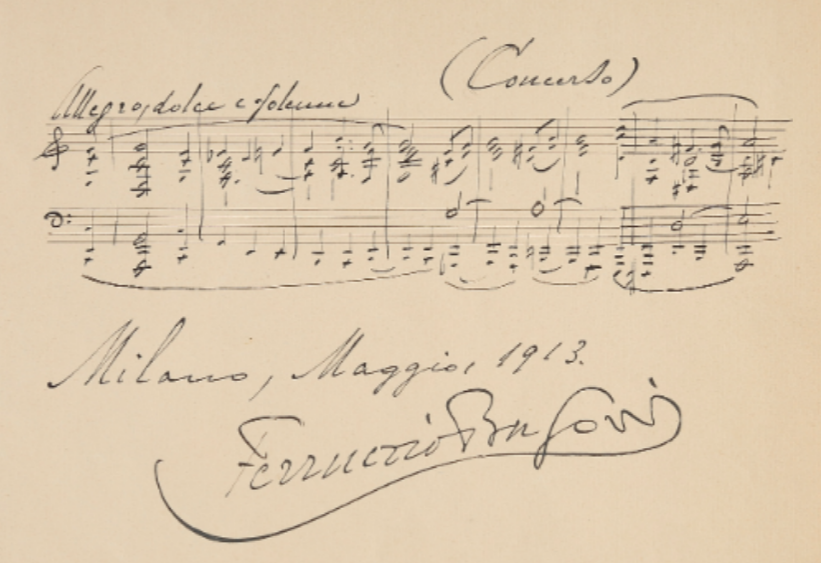 (Concerto)
Allegro, dolce e solenne
Milano, Maggio, 1913.
Ferruccio Busoni